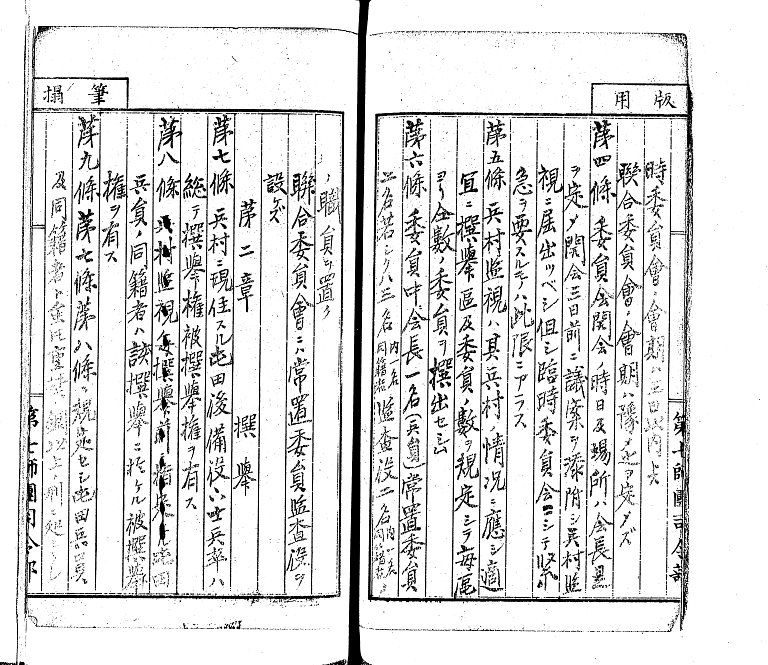 用版
時委員會ノ會期ハ五日以内トス
聯合委員會ノ會期ハ豫メ之ヲ定メズ
第四條 委員会開会ノ時日及場所ハ会長
ヲ定メ開会三日前ニ議案ヲ添附シ兵村監
視ニ届出ツベシ但シ臨時委員会ニシテ緊
急ヲ要スルモノハ此限ニアラス
第五條 兵村監視ハ其兵村ノ情况ニ應シ適
宜ニ撰擧區及委員ノ數ヲ規定シテ毎區
ヨリ全數ノ委員ヲ撰出セシム
第六條 委員中会長一名(兵員)常置委員
二名若シクハ三名 内一名同籍者 監査役二名
第七師團司令部
筆搨
ノ職員ヲ置ク
聯合委員會ニハ常置委員監査役ヲ
設ケズ
第二章 撰擧
第七條 兵村ニ現住スル屯田後備役下士兵卒ハ
総テ撰擧權被撰擧權ヲ有ス
第八條 兵村監視
兵員ノ同籍者ハ該撰擧ニ於ケル被撰擧
權ヲ有ス
第九條 第七條第八條ニ規定セシ屯田兵員
及同籍者ト
第七師團司令部